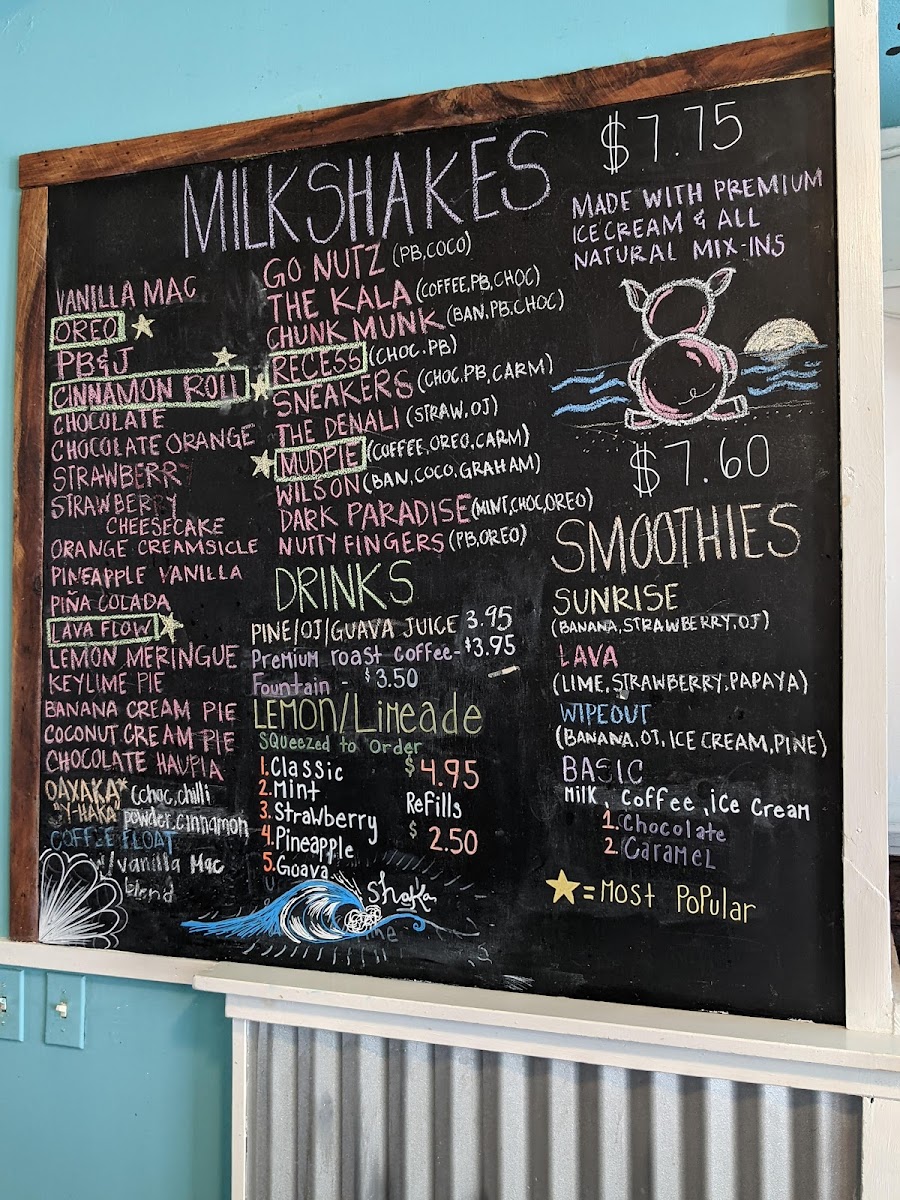 MILKSHAKES
$7.75
MADE WITH PREMIUM
ICE CREAM & ALL
NATURAL MIX-INS
VANILLA MAC
OREO
PB&J
CINNAMON ROLL
CHOCOLATE
CHOCOLATE ORANGE
STRAWBERRY
STRAWBERRY
CHEESECAKE
ORANGE CREAMSICLE
PINEAPPLE VANILLA
PIÑA COLADA
LAVA FLOW
LEMON MERINGUE
KEYLIME PIE
BANANA CREAM PIE
COCONUT CREAM PIE
CHOCOLATE HAUPIA
OAXAKA* (choc, chilli
"Y-HAKA" powder, cinnamon
COFFEE FLOAT
w/ vanilla Mac
blend
GO NUTZ (PB, COCO)
THE KALA (COFFEE, PB, CHOC)
CHUNK MUNK (BAN, PB, CHOC)
RECESS (CHOC, PB)
SNEAKERS (CHOC, PB, CARM)
THE DENALI (STRAW, OJ)
MUDPIE (COFFEE, OREO, CARM)
WILSON (BAN, COCO, GRAHAM)
DARK PARADISE (MINT, CHOC, OREO)
NUTTY FINGERS (PB, OREO)
DRINKS
PINE/OJ/GUAVA JUICE 3.95
Premium roast coffee - $3.95
Fountain - $3.50
LEMON/Limeade
SQueezed to Order
1. Classic $4.95
2. Mint
3. Strawberry Refills
4. Pineapple $2.50
5. Goava
Shaka
$7.60
SMOOTHIES
SUNRISE
(BANANA, STRAWBERRY, OJ)
LAVA
(LIME, STRAWBERRY, PAPAYA)
WIPEOUT
(BANANA, OJ, ICE CREAM, PINE)
BASIC
Milk, Coffee, ice Cream
1. Chocolate
2. Caramel
= Most Popular